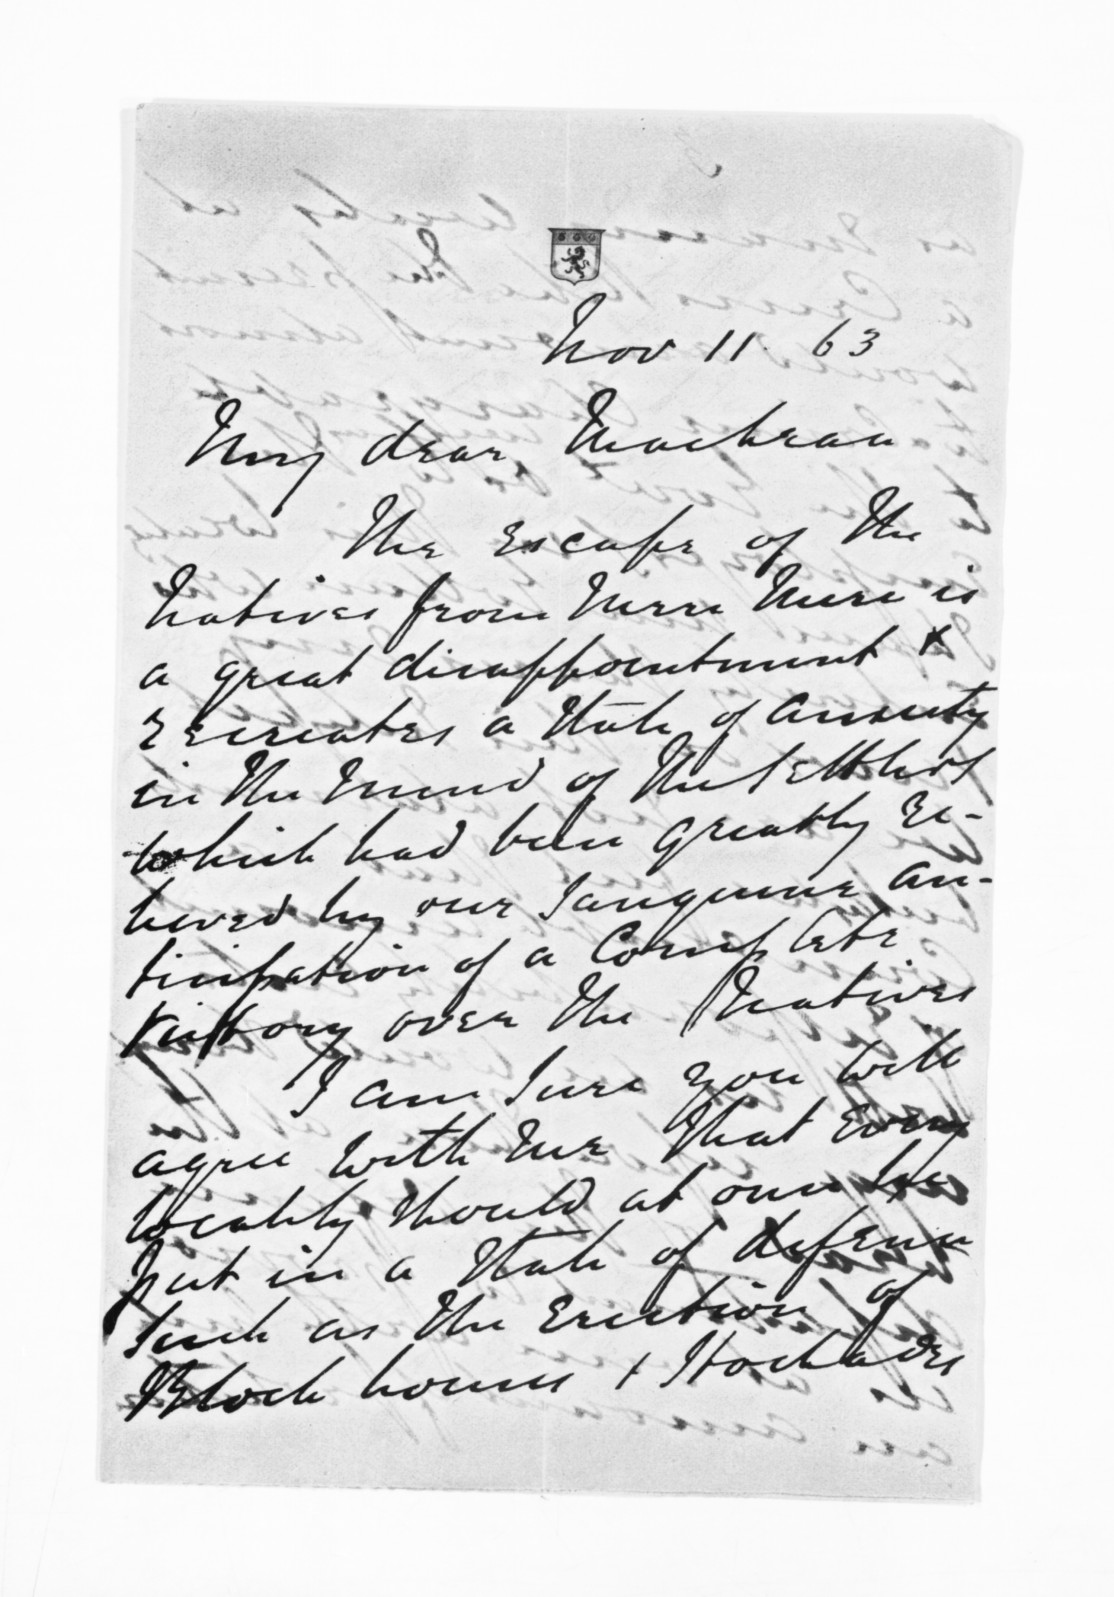 Nov 11. 63
My dear Maclean
The Escape of the
Natives from Mere Mere is
a great disappointment &
recreates a State of Anxiety
in the mind of the Settlers
which had been greatly re-
lieved by our Sanguine An-
ticipation of a Complete
Victory over the Natives
I am Sure you will
agree with me that Every
locality should at once be
put in a State of defence
Such as the Erection of
Block houses & Stockades